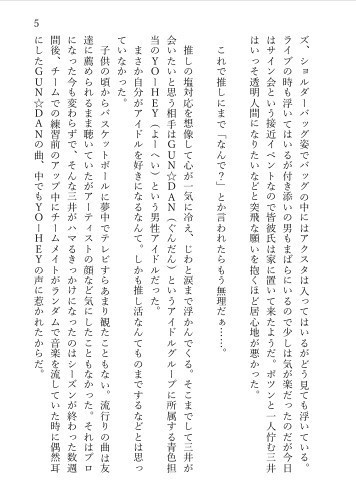 5
ズ、ショルダーバッグ姿でバッグの中にはアクスタは入ってはいるがどう見ても浮いている。
ライブの時も浮いてはいるが付き添いの男もまばらにいるので少しは気が楽だったのだが今日
はサイン会という接近イベントなので皆彼氏は家に置いて来たようだ。ポツンと一人佇む三井
はいっそ透明人間になりたいなどと突飛な願いを抱くほど居心地が悪かった。
これで推しにまで「なんで？」とか言われたらもう無理だぁ……。
推しの塩対応を想像して心が一気に冷え、じわと涙まで浮かんでくる。そこまでして三井が
会いたいと思う相手はGUN☆DAN（ぐんだん）というアイドルグループに所属する青色担
当のYO―HEY（よーへい）という男性アイドルだった。
まさか自分がアイドルを好きになるなんて。しかも推し活なんてものまでするなどとは思っ
ていなかった。
子供の頃からバスケットボールに夢中でテレビすらあまり観たこともない。流行りの曲は友
達に薦められるまま聴いていたがアーティストの顔など気にしたこともなかった。それはプロ
になった今も変わらずで、そんな三井がハマるきっかけになったのはシーズンが終わった数週
間後、チームでの練習前のアップ中にチームメイトがランダムで音楽を流していた時に偶然耳
にしたGUN☆DANの曲、中でもYO―HEYの声に惹かれたからだ。